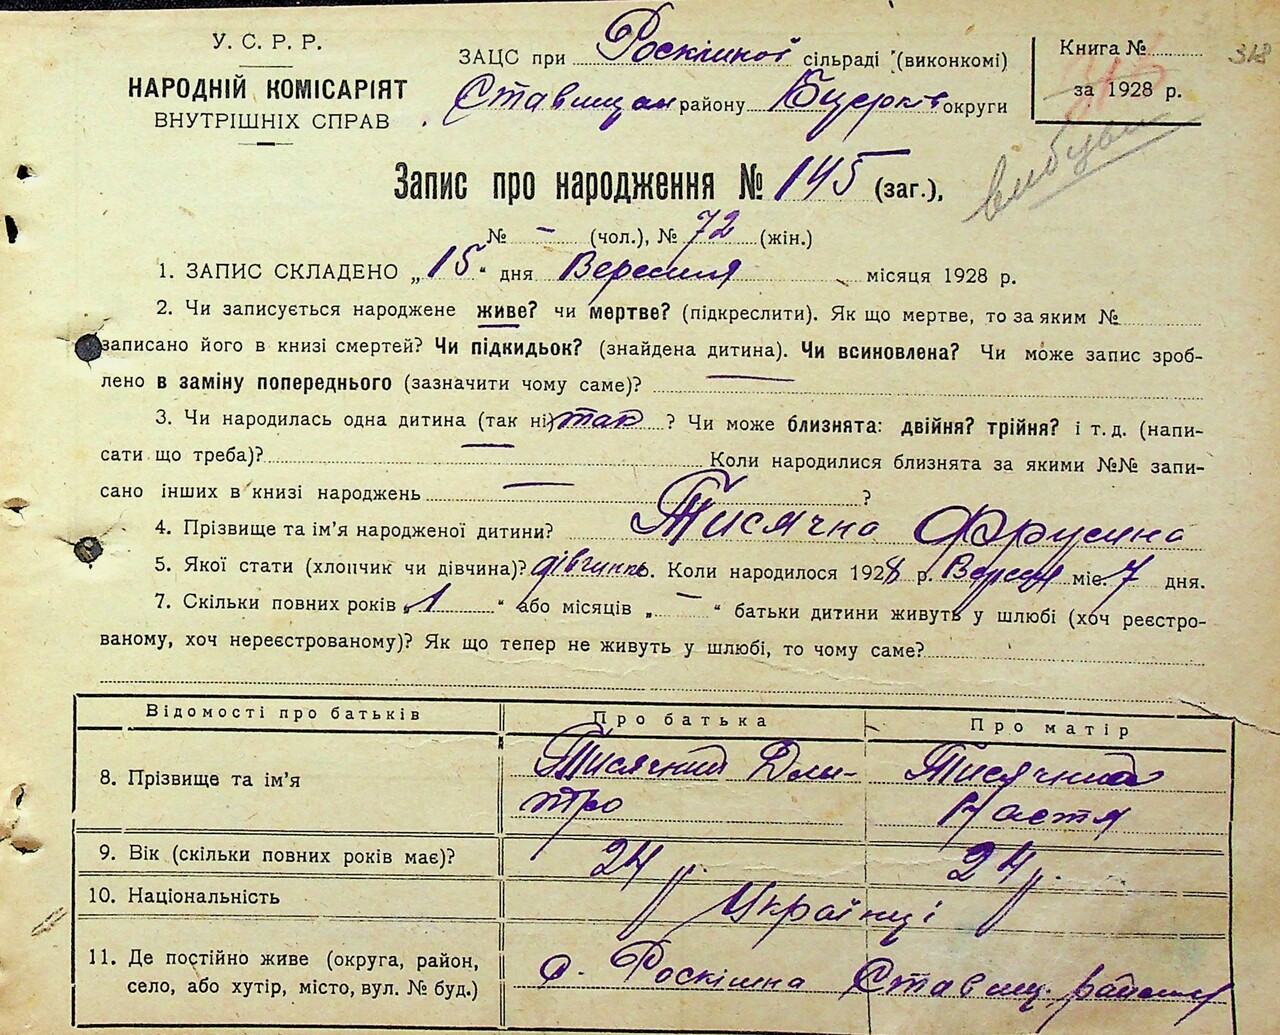 У. С. Р. Р.
НАРОДНІЙ КОМІСАРІЯТ
ВНУТРІШНІХ СПРАВ
ЗАЦС при Роскішної сільраді (виконкомі)
Ставищан району Бцерків округи
Книга №
за 1928 р.
318
вибула
Запис про народження № 145 (заг.),
№ – (чол.), № 72 (жін.)
1. ЗАПИС СКЛАДЕНО „ 15 " дня Вересня місяця 1928 р.
2. Чи записується народжене живе? чи мертве? (підкреслити). Як що мертве, то за яким №
записано його в книзі смертей? Чи підкидьок? (знайдена дитина). Чи всиновлена? Чи може запис зроб-
лено в заміну попереднього (зазначити чому саме)?
3. Чи народилась одна дитина (так ні) так ? Чи може близнята: двійня? трійня? і т. д. (напи-
сати що треба)? Коли народилися близнята за якими №№ запи-
сано інших в книзі народжень ?
4. Прізвище та ім'я народженої дитини? Тисячна Фрусина
5. Якої стати (хлопчик чи дівчина)? дівчинк. Коли народилося 1928 р. Вересня міс. 7 дня.
7. Скільки повних років „ 1 " або місяців „ – " батьки дитини живуть у шлюбі (хоч реєстро-
ваному, хоч нереєстрованому)? Як що тепер не живуть у шлюбі, то чому саме?
Відомості про батьків Про батька Про матір
8. Прізвище та ім'я Тисячний Дми- Тисячная
тро Настя
9. Вік (скільки повних років має)? 24 р. 24 р.
10. Національність Українці
11. Де постійно живе (округа, район,
село, або хутір, місто, вул. № буд.) с. Роскішна Ставищ. району